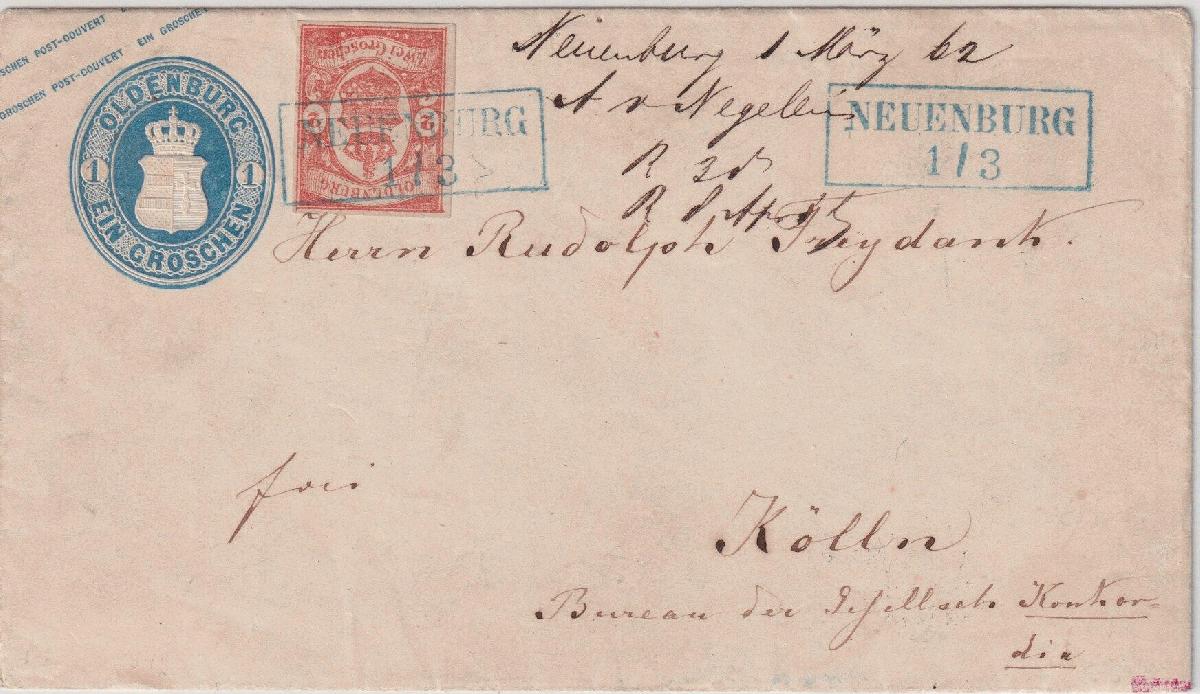 SCHEN POST-COUVERT
GROSCHEN POST-COUVERT EIN GROSCHE
OLDENBURG
1 1
EIN GROSCHEN
2 2
OLDENBURG
NEUENBURG
1/3
Neuenburg 1 März 62
A v Negelein
NEUENBURG
1/3
Herrn Rudolph Freydank.
frei
Kölln
Bureau der Gesellsch Konkor-
dia